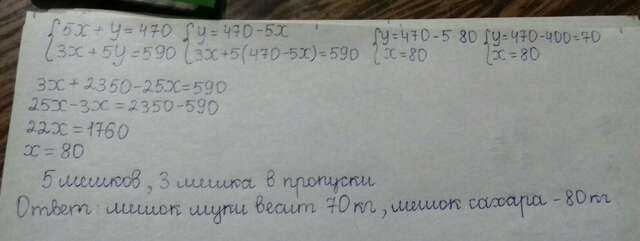 {5x + y = 470 {y = 470-5x {y=470-5 80 {y=470-400=70
{3x + 5y = 590 {3x+5(470-5x)=590 {x=80 {x=80
3x + 2350-25x=590
25x-3x = 2350-590
22x = 1760
x = 80
5 мешков, 3 мешка в пропуски
Ответ: мешок муки весит 70кг, мешок сахара - 80кг